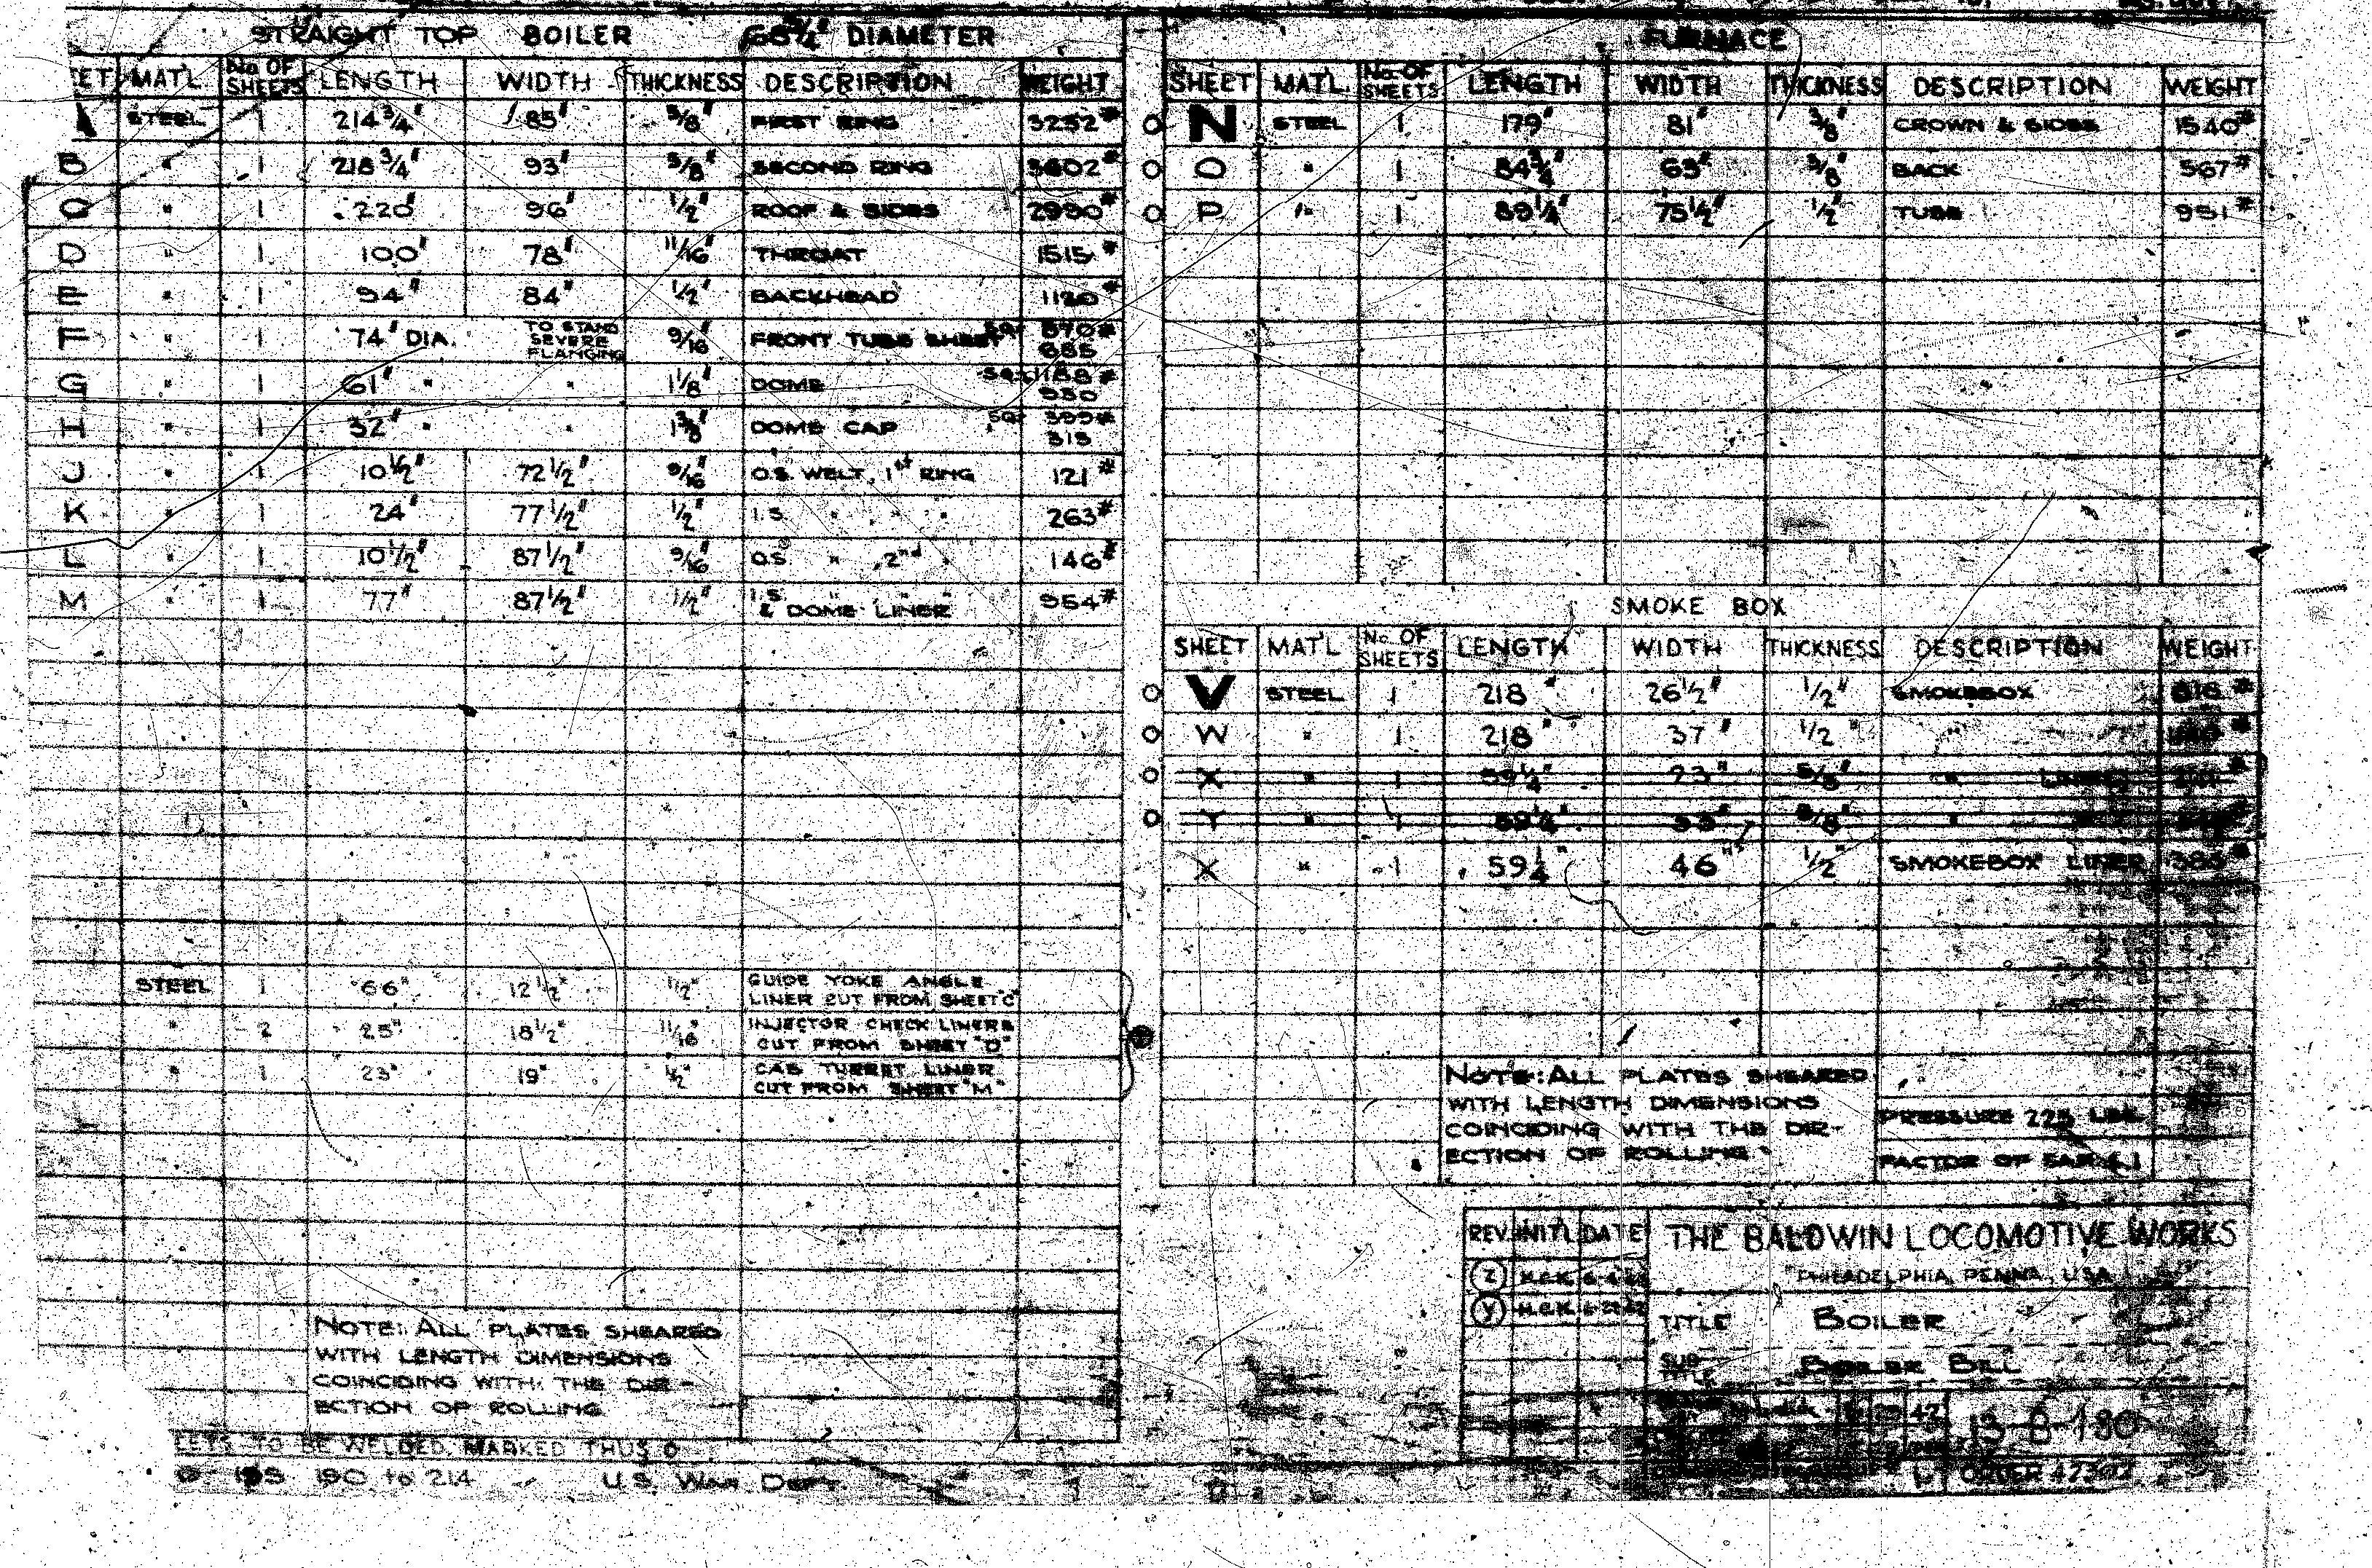 STRAIGHT TOP BOILER 68¾" DIAMETER
MAT'L No. OF SHEETS LENGTH WIDTH THICKNESS DESCRIPTION WEIGHT
A STEEL 1 214 3/4" 85" 5/8" FIRST RING 3252#
B " 1 218 3/4" 93" 5/8" SECOND RING 3602#
C " 1 220" 96" 1/2" ROOF & SIDES 2990#
D " 1 100" 78" 11/16" THROAT 1515#
E " 1 94" 84" 1/2" BACKHEAD 1120#
F " 1 74" DIA. TO STAND SEVERE FLANGING 9/16" FRONT TUBE SHEET SQ. 870# 685
G " 1 61" " " 1 1/8" DOME SQ. 1188# 930
H " 1 32" " " 1 3/8" DOME CAP SQ. 399# 313
J " 1 10 1/2" 72 1/2" 9/16" O.S. WELT, 1st RING 121#
K " 1 24" 77 1/2" 1/2" I.S. " " " 263#
L " 1 10 1/2" 87 1/2" 9/16" O.S. " , 2nd " 146#
M " 1 77" 87 1/2" 1/2" I.S. " " "
& DOME LINER 954#
STEEL 1 66" 12 1/2" 1/2" GUIDE YOKE ANGLE
LINER CUT FROM SHEET "C"
" 2 25" 18 1/2" 11/16" INJECTOR CHECK LINERS
CUT FROM SHEET "D"
" 1 23" 19" 1/2" CAB TURRET LINER
CUT FROM SHEET "M"
NOTE: ALL PLATES SHEARED
WITH LENGTH DIMENSIONS
COINCIDING WITH THE DIR-
ECTION OF ROLLING
TO BE WELDED, MARKED THUS O
190 to 214 U.S. War Dept.
FURNACE
SHEET MAT'L No. OF SHEETS LENGTH WIDTH THICKNESS DESCRIPTION WEIGHT
O N STEEL 1 179" 81" 3/8" CROWN & SIDES 1540#
O O " 1 84 3/4" 63" 3/8" BACK 567#
O P " 1 89 1/4" 75 1/2" 1/2" TUBE 951#
SMOKE BOX
SHEET MAT'L No. OF SHEETS LENGTH WIDTH THICKNESS DESCRIPTION WEIGHT
O V STEEL 1 218" 26 1/2" 1/2" SMOKEBOX 818#
O W " 1 218" 37" 1/2" "
O X " 1 59 1/4" 23" 5/8" " LINER
O Y " 1 59 1/4" 5/8" "
X " 1 59 1/4" 46" 1/2" SMOKEBOX LINER 385#
NOTE: ALL PLATES SHEARED
WITH LENGTH DIMENSIONS
COINCIDING WITH THE DIR-
ECTION OF ROLLING
PRESSURE 225 LBS.
FACTOR OF
REV. INIT'L DATE
Z H.C.K.
Y H.C.K.
THE BALDWIN LOCOMOTIVE WORKS
PHILADELPHIA, PENNA., U.S.A.
TITLE BOILER
SUB TITLE BOILER BILL
42 13-B-180
ORDER